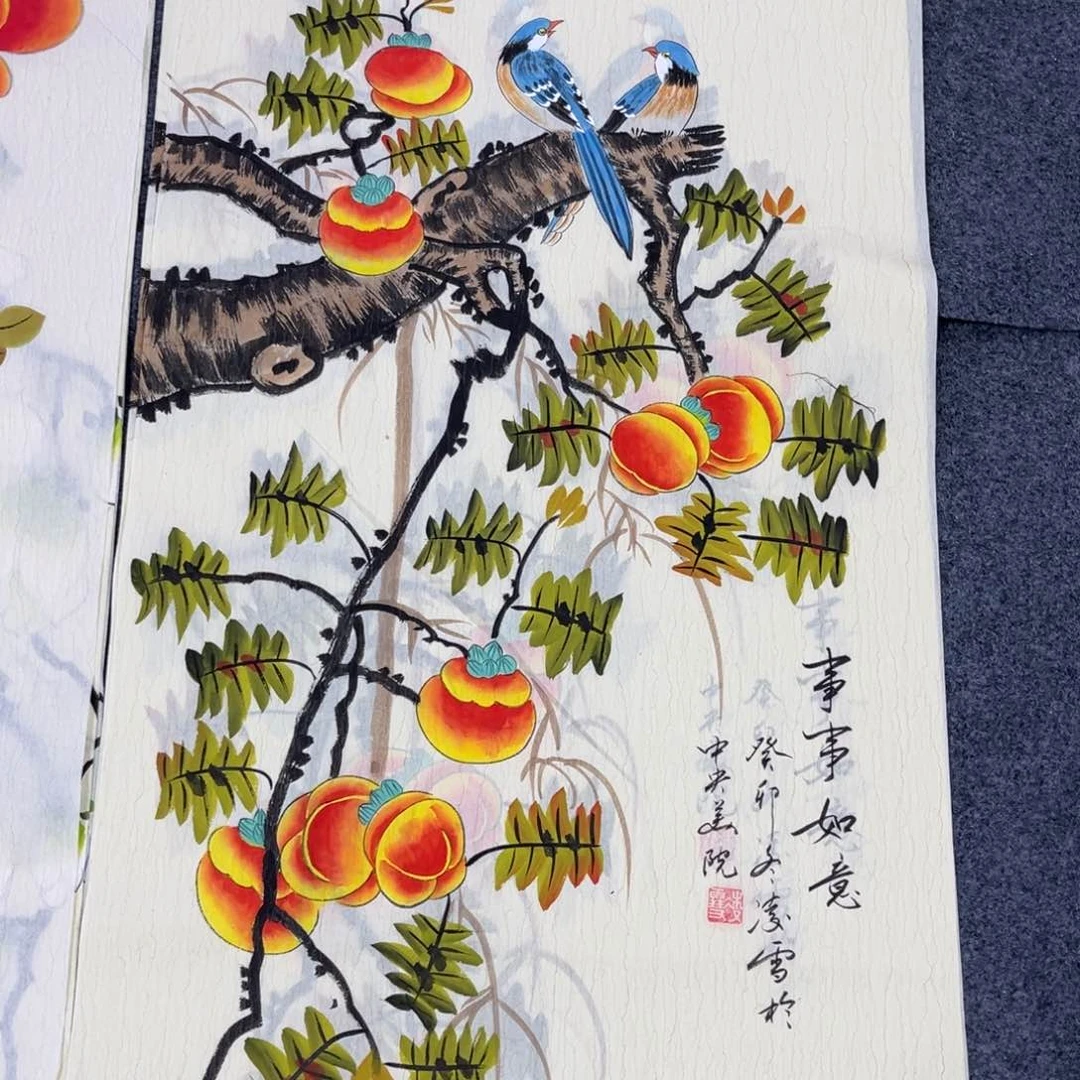 事事如意
癸卯冬凌雪於
中央美院